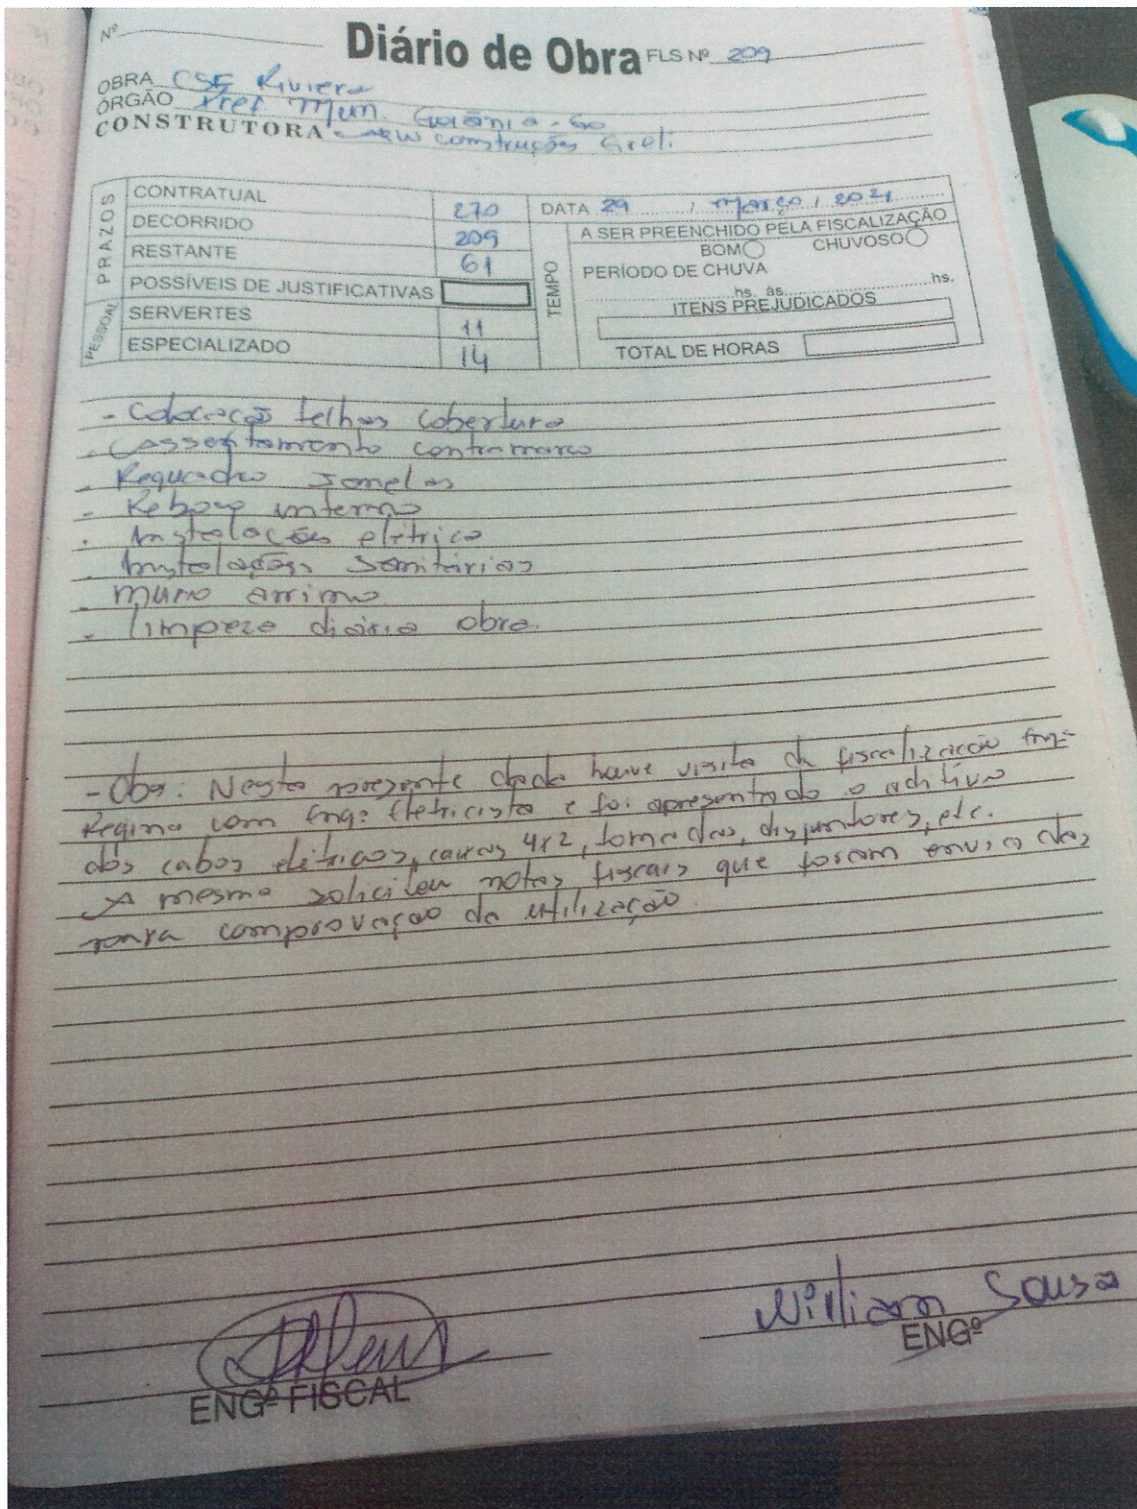 Nº
Diário de Obra FLS Nº 209
OBRA CSF Riviera
ÓRGÃO Pref Mun. Goiânia - Go
CONSTRUTORA construções Eireli
PRAZOS
CONTRATUAL 270
DECORRIDO 209
RESTANTE 61
POSSÍVEIS DE JUSTIFICATIVAS
PESSOAL
SERVERTES 11
ESPECIALIZADO 14
DATA 29 / março / 2021
TEMPO
A SER PREENCHIDO PELA FISCALIZAÇÃO
BOM CHUVOSO
PERÍODO DE CHUVA
hs. às hs.
ITENS PREJUDICADOS
TOTAL DE HORAS
- Colocação telhas cobertura
- Assentamento contramarco
- Requadro Janelas
- Reboco interno
- Instalações elétrica
- Instalações Sanitárias
- muro arrimo
- limpeza diária obra.
- Obs: Nesta presente data houve visita da fiscalização Engª
Regina com Engº Eletricista e foi apresentado o aditivo
dos cabos elétricos, caixas 4x2, tomadas, disjuntores, etc.
A mesma solicitou notas fiscais que foram enviadas
para comprovação da utilização.
ENGº FISCAL
Willian Sousa
ENGº